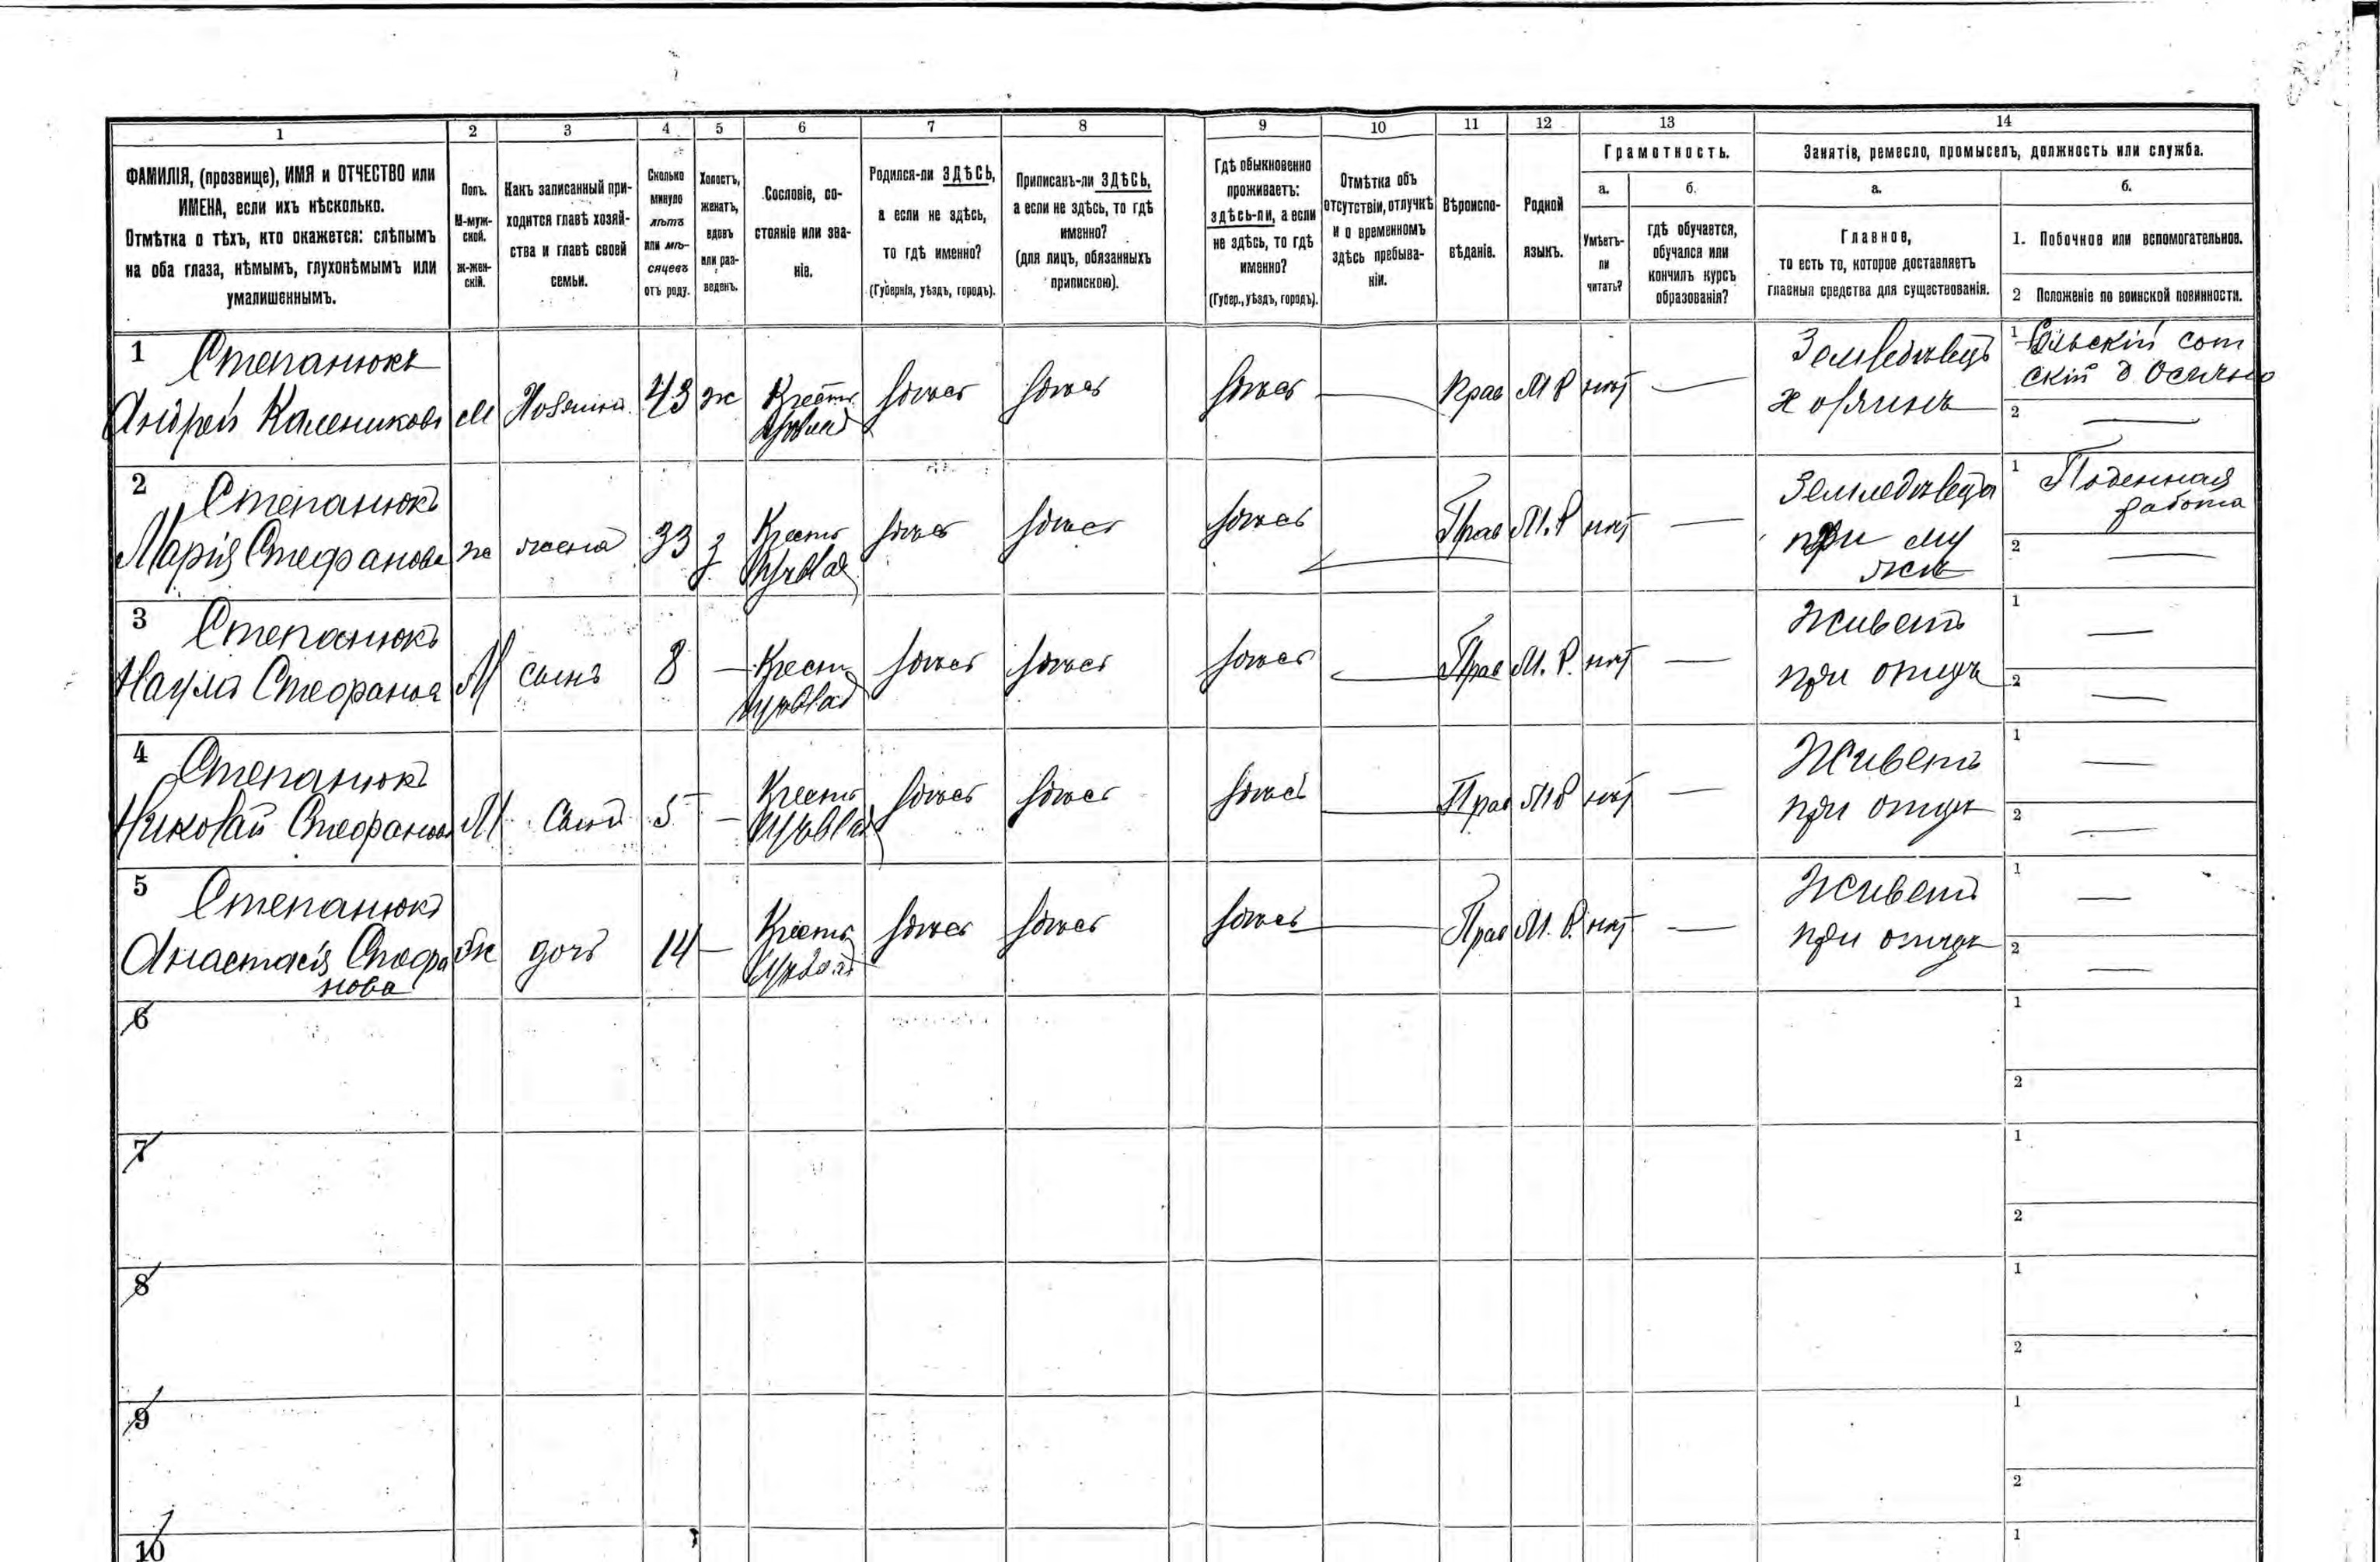 1 2 3 4 5 6 7 8 9 10 11 12 13 14
ФАМИЛІЯ, (прозвище), ИМЯ и ОТЧЕСТВО или
ИМЕНА, если ихъ нѣсколько.
Отмѣтка о тѣхъ, кто окажется: слѣпымъ
на оба глаза, нѣмымъ, глухонѣмымъ или
умалишеннымъ.
Полъ.
М-муж-
ской.
Ж-жен-
скій.
Какъ записанный при-
ходится главѣ хозяй-
ства и главѣ своей
семьи.
Сколько
минуло
лѣтъ
или мѣ-
сяцевъ
отъ роду.
Холостъ,
женатъ,
вдовъ
или раз-
веденъ.
Сословіе, со-
стояніе или зва-
ніе.
Родился-ли ЗДѢСЬ,
а если не здѣсь,
то гдѣ именно?
(Губернія, уѣздъ, городъ).
Приписанъ-ли ЗДѢСЬ,
а если не здѣсь, то гдѣ
именно?
(для лицъ, обязанныхъ
припискою).
Гдѣ обыкновенно
проживаетъ:
здѣсь-ли, а если
не здѣсь, то гдѣ
именно?
(Губер., уѣздъ, городъ).
Отмѣтка объ
отсутствіи, отлучкѣ
и о временномъ
здѣсь пребыва-
ніи.
Вѣроиспо-
вѣданіе.
Родной
языкъ.
Грамотность.
а.
Умѣетъ-
ли
читать?
б.
гдѣ обучается,
обучался или
кончилъ курсъ
образованія?
Занятіе, ремесло, промыселъ, должность или служба.
а.
Главное,
то есть то, которое доставляетъ
главныя средства для существованія.
б.
1. Побочное или вспомогательное.
2 Положеніе по воинской повинности.
1 Степанюкъ
Андрей Калениковъ
м
Хозяинъ
43
ж
Крестъ
здѣсь
здѣсь
здѣсь
—
Прав
М Р
нѣт
—
Земледѣлецъ
хозяинъ
1 Сельскій сот
скій д
2 —
2 Степанюкъ
Марія Стефанова
ж
жена
33
з
Крестъ
здѣсь
здѣсь
здѣсь
—
Прав
М. Р
нѣт
—
Земледѣлецъ
при му
жѣ
1 Поденная
работа
2 —
3 Степанюкъ
Наумъ
М
сынъ
8
—
Крест
здѣсь
здѣсь
здѣсь
—
Прав
М. Р.
нѣт
—
Живетъ
при отцѣ
1 —
2 —
4 Степанюкъ
Николай
М
сынъ
5
—
Крестъ
здѣсь
здѣсь
здѣсь
—
Прав
М Р
нѣт
—
Живетъ
при отцѣ
1 —
2 —
5 Степанюкъ
Анастасія Стефа
нова
ж
дочь
14
—
Крестъ
здѣсь
здѣсь
здѣсь
—
Прав
М. Р.
нѣт
—
Живетъ
при отцѣ
1 —
2 —
6
1
2
7
1
2
8
1
2
9
1
2
10
1